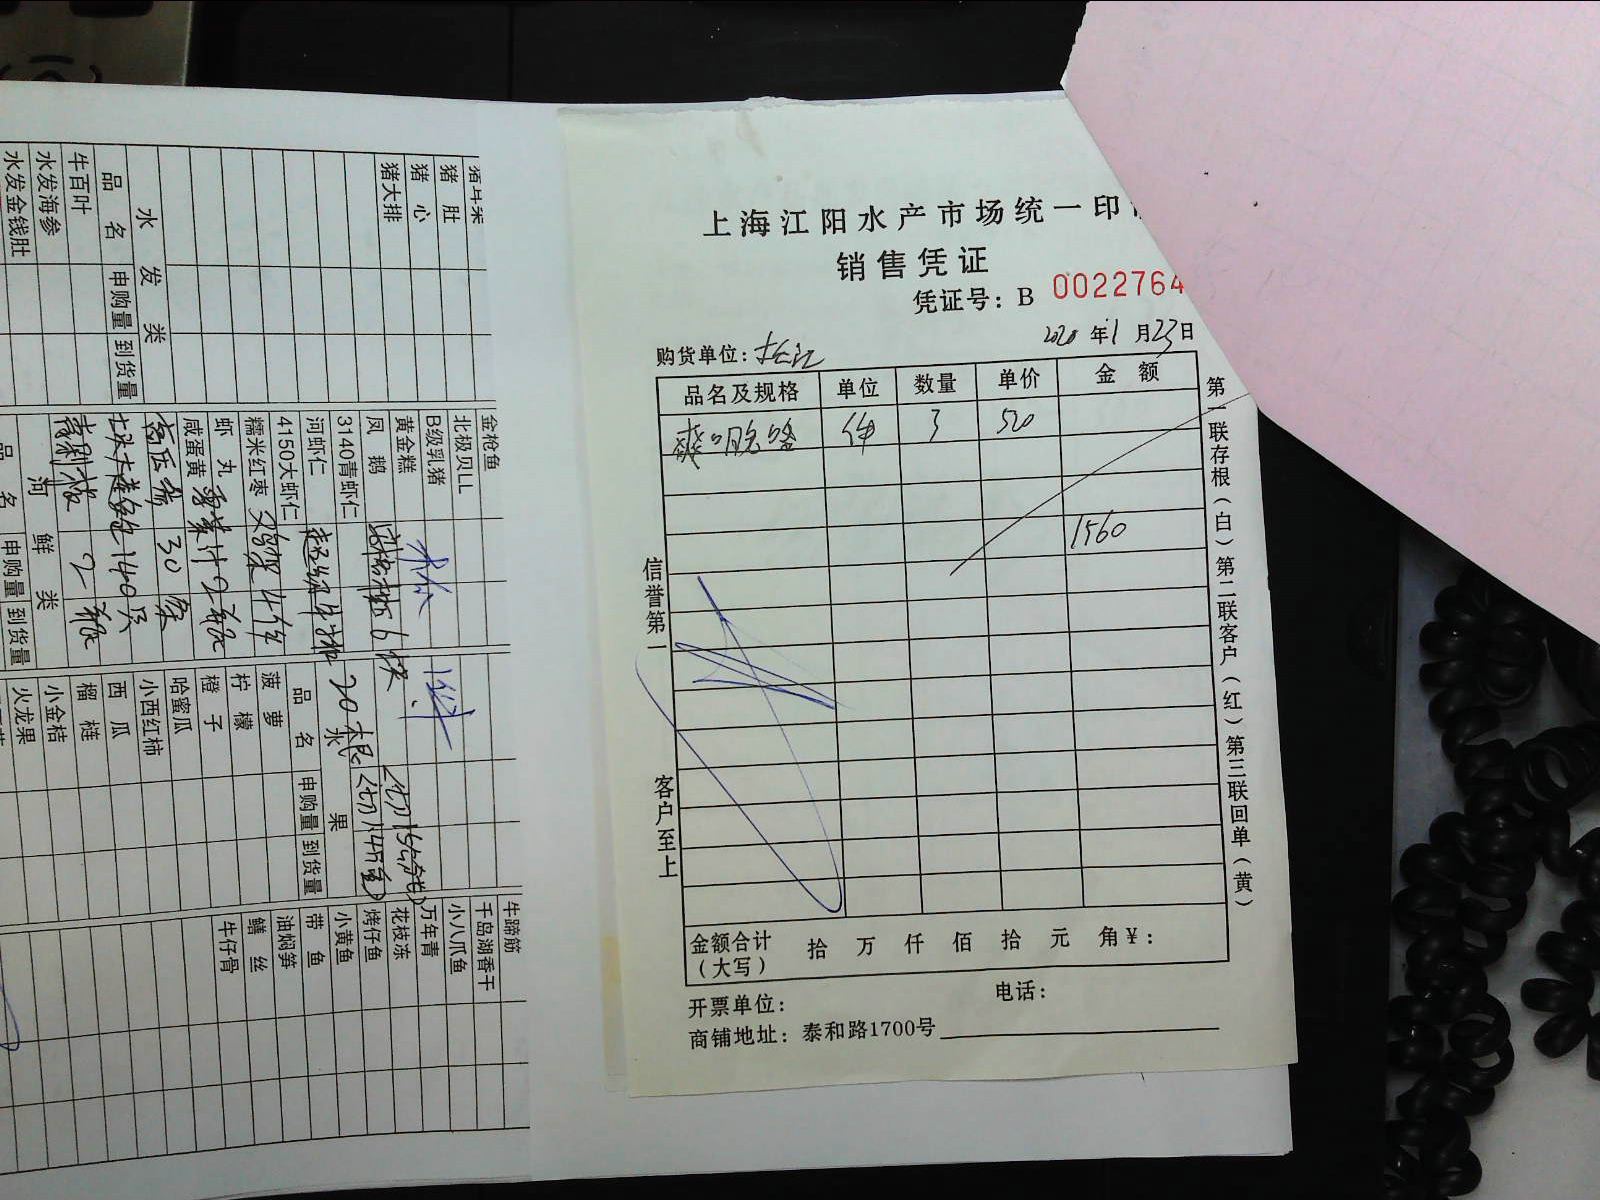 上海江阳水产市场统一印
销售凭证
凭证号：B 0022764
2020 年 1 月 23 日
购货单位：长江
品名及规格 单位 数量 单价 金 额
件 3 520
1560
信誉第一
客户至上
第一联存根（白）第二联客户（红）第三联回单（黄）
金额合计（大写） 拾 万 仟 佰 拾 元 角 ￥：
开票单位： 电话：
商铺地址：泰和路1700号
猪肚
猪心
猪大排
水发类
品名 申购量 到货量
牛百叶
水发海参
水发金钱肚
金枪鱼
北极贝LL
B级乳猪
黄金糕
凤鹅
3140青虾仁
河虾仁
4150大虾仁
糯米红枣
虾丸
咸蛋黄
30条
140只
2瓶
河鲜类
品名 申购量 到货量
水果
品名 申购量 到货量
菠萝
柠檬
橙子
哈蜜瓜
小西红柿
西瓜
榴梿
小金桔
火龙果
牛蹄筋
千岛湖香干
小八爪鱼
万年青
花枝冻
烤仔鱼
小黄鱼
带鱼
油焖笋
鳝丝
牛仔骨